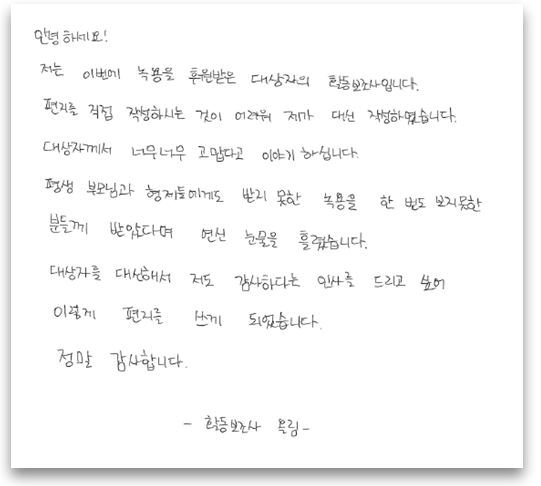 안녕하세요!
저는 이번에 녹용을 후원받은 대상자의 활동보조사입니다.
편지를 직접 작성하시는 것이 어려워 제가 대신 작성하였습니다.
대상자께서 너무너무 고맙다고 이야기 하십니다.
평생 부모님과 형제들에게도 받지 못한 녹용을 한 번도 보지못한
분들께 받았다며 연신 눈물을 흘렸습니다.
대상자를 대신해서 저도 감사하다는 인사를 드리고 싶어
이렇게 편지를 쓰게 되었습니다.
정말 감사합니다.
- 활동보조사 올림 -